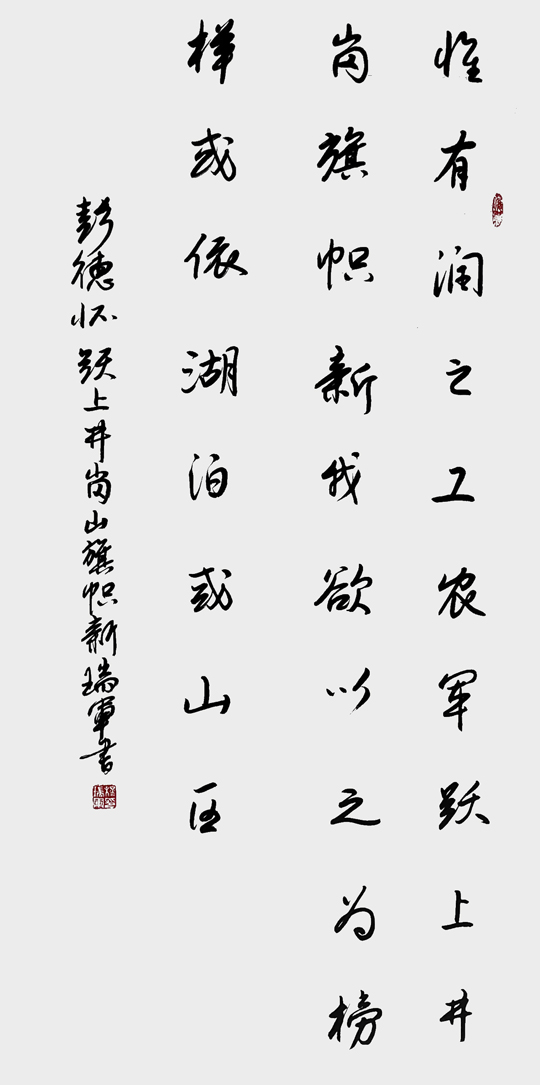 惟有润之工农军跃上井
岗旗帜新我欲以之为榜
样或依湖泊或山区
彭德怀跃上井岗山旗帜新瑞军书